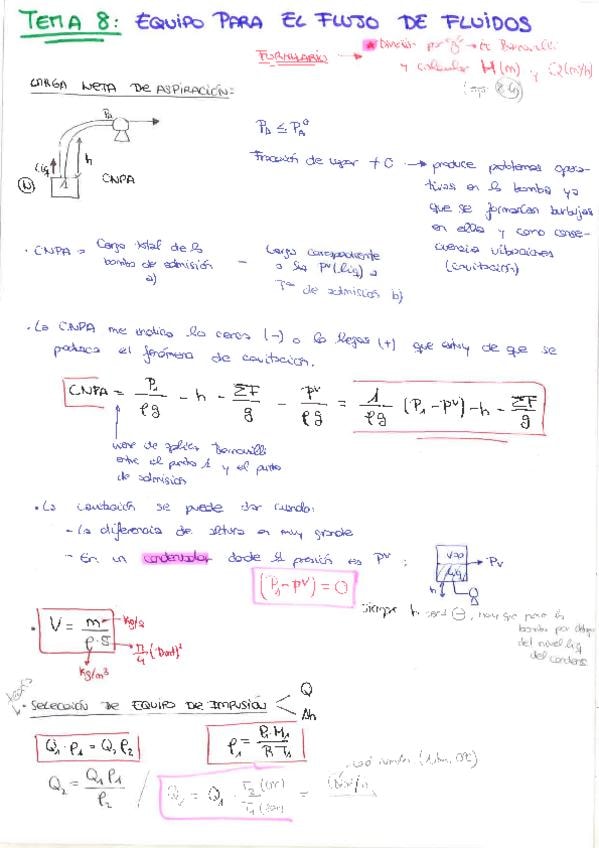 TEMA 8: EQUIPO PARA EL FLUJO DE FLUIDOS
FORMULARIO → * Dividir por "g" → Ec Bernouilli
y calcular H(m) y Q(m³/h)
CARGA NETA DE ASPIRACIÓN:
CNPA
h
Liq
1
Fracción de vapor ↑C → produce problemas opera-
tivos en la bomba ya
que se formarían burbujas
en ella y como conse-
cuencia vibraciones
(cavitación)
· CNPA = Carga total de la bomba de admisión a) − Carga correspondiente a la Pᵛ(liq) a Tª de admisión b)
· La CNPA me indica lo cerca (-) o lo lejos (+) que estoy de que se
produzca el fenómeno de cavitación.
CNPA = P₁/ρg - h - ΣF/g - Pᵛ/ρg = 1/ρg (P₁-Pᵛ) - h - ΣF/g
viene de aplicar Bernouilli
entre el punto 1 y el punto
de admisión
· La cavitación se puede dar cuando:
- La diferencia de altura es muy grande
- En un condensador donde la presión es Pᵛ :
vap → Pv
liq
h
(P₁-Pᵛ) = 0
siempre h será ⊖, hay que poner la
bomba por debajo
del nivel liq
del condens.
· V = m/ρ·S
kg/s
π/4 (Dint)²
kg/m³
· SELECCIÓN DE EQUIPO DE IMPULSIÓN < Q
Δh
Q₁·ρ₁ = Q₂ρ₂
ρ₁ = P₁·M₁/R·T₁
Q₂ = Q₁ρ₁/ρ₂ / Q₂ = Q₁ · T₂/T₁ =